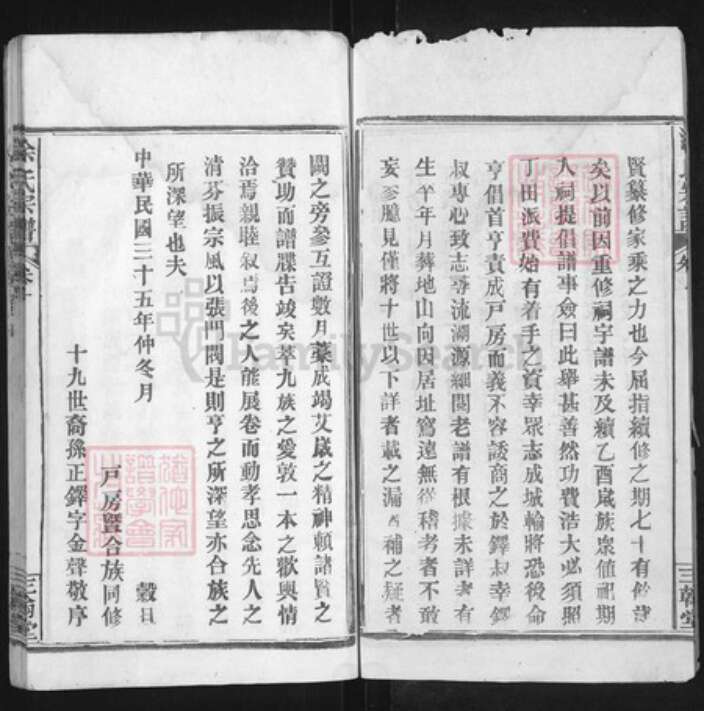 賢纂修家乘之力也今屈指續修之期七十有餘
矣以前因重修祠宇譜未及續乙酉歲族衆值祀期
入祠提倡譜事僉曰此舉甚善然功費浩大必須照
丁田派費始有着手之資幸眾志成城輸將恐後命
亨倡首亨責成戶房而義不容諉商之於鐸叔幸鐸
叔專心致志尋流溯源細閱老譜有根據未詳者有
生卒年月葬地山向因居址寫遠無從稽考者不敢
妄參臆見僅將十世以下詳者載之漏者補之疑者
闕之旁參互證數月藁成竭艾歲之精神賴諸賢之
贊助而譜牒告竣矣萃九族之愛敦一本之歡輿情
洽焉親睦叙焉後之人能展卷而動孝思念先人之
清芬振宗風以張門閭是則亨之所深望亦合族之
所深望也夫
中華民國三十五年仲冬月 穀旦
戶房暨合族同修
十九世裔孫正鐸字金聲敬序
涂氏宗譜 卷首
三翰堂
三翰堂
FamilySearch